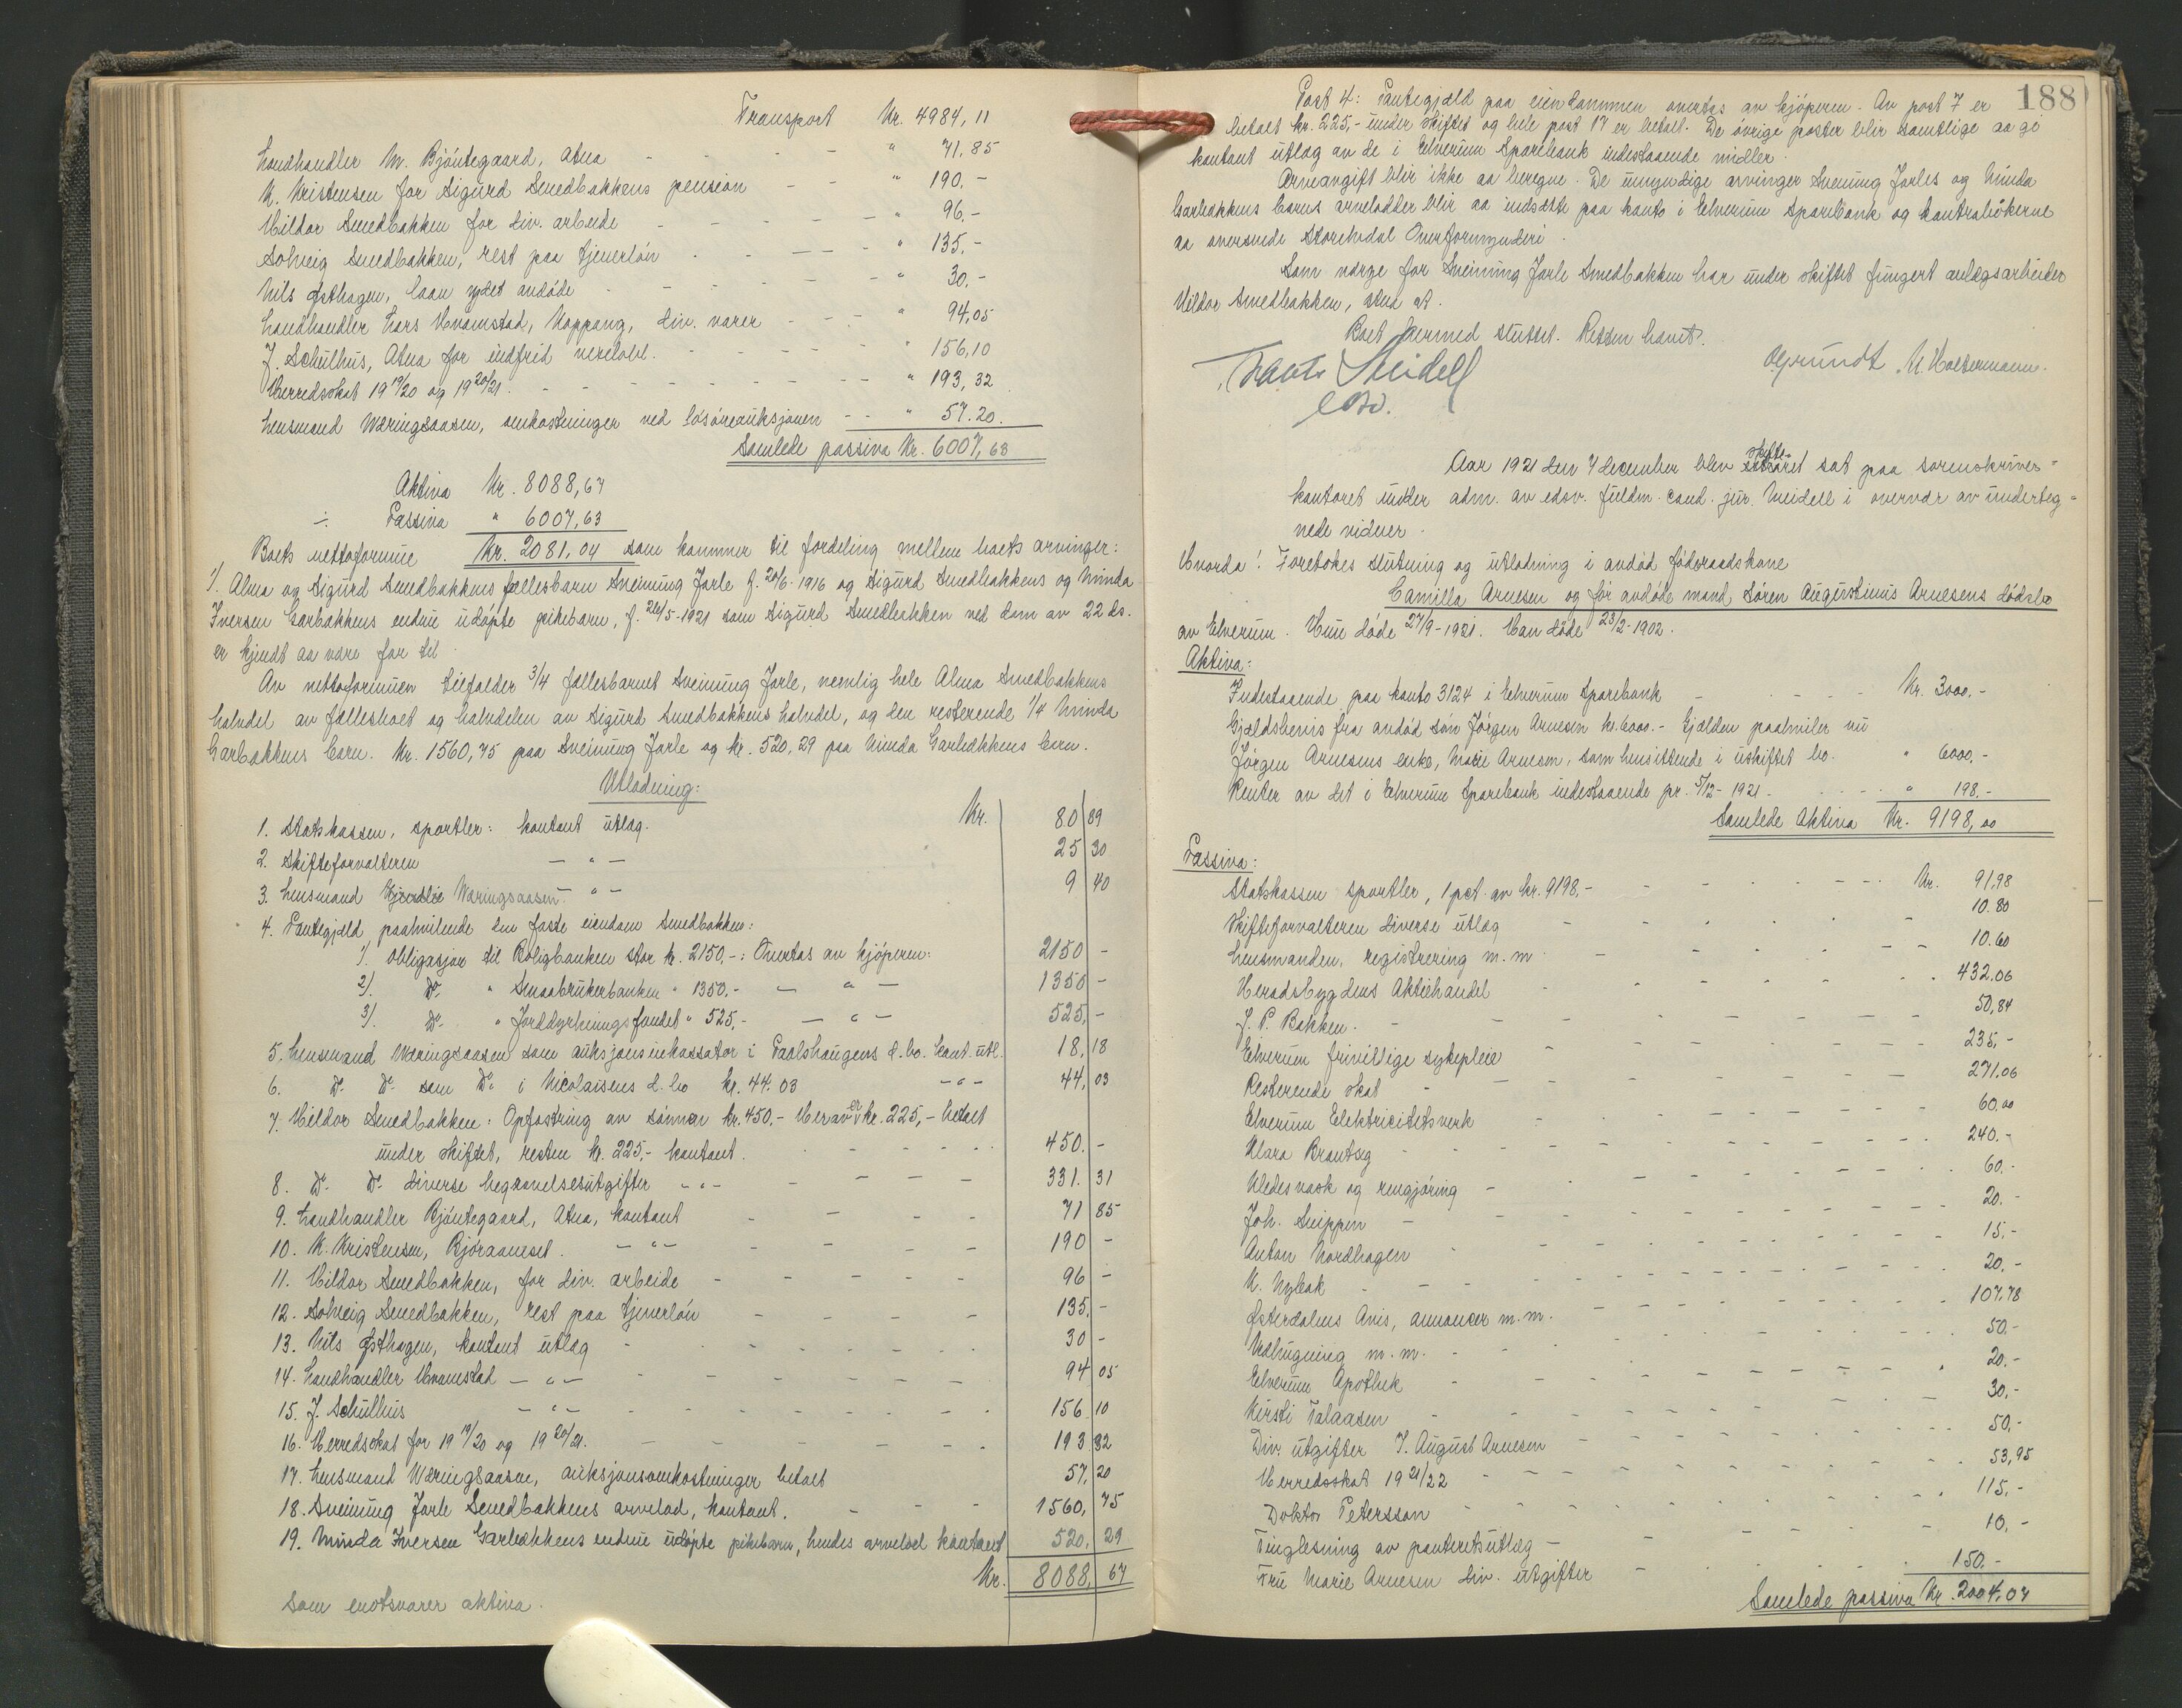 Transport Kr. 4984,11
Landhandler M. Bjöntegaard, Atna - - - - " 71.85
K. Kristensen for Sigurd Smedbakkens pension - - " 190.-
Hildor Smedbakken for div. arbeide - - - - " 96,-
Solveig Smedbakken, rest paa tjenerlön - - - - " 135.-
Nils Østhagen, laan ydet avdöde - - - - - " 30.-
Landhandler Lars Kvamstad, Koppang, div. varer - - - " 94,05
J. Schulhus, Atna for indfrid vekselobl. - - - - " 156,10
Herredsskat 19 19/20 og 19 20/21. - - - - - - - " 193,32
Lensmand Wæringsaasen, omkostninger ved lösöreauksjonen - - " 57.20.
Samlede passiva Kr. 6007,63
Aktiva Kr. 8088,67
÷ Passiva " 6007,63
Boets nettoformue Kr. 2081,04 som kommer til fordeling mellem boets arvinger:
1/. Alma og Sigurd Smedbakkens fællesbarn Sveinung Jarle f. 20/6-1916 og Sigurd Smedbakkens og Minda
Iversen Garbakkens endnu udöpte pikebarn, f. 26/5-1921 som Sigurd Smedbakken ved dom av 22 ds.
er kjendt aa være far til.
Av nettoformuen tilfalder 3/4 fællesbarnet Sveinung Jarle, nemlig hele Alma Smedbakkens
halvdel av fællesboet og halvdelen av Sigurd Smedbakkens halvdel, og den resterende 1/4 Minda
Garbakkens barn. Kr. 1560,75 paa Sveinung Jarle og kr. 520,29 paa Minda Garbakkens barn.
Utlodning:
1. Statskassen, sportler: kontant utlæg. Kr. 80 89
2. Skifteforvalteren - " - 25 30
3. Lensmand Wæringsaasen - " - 9 40
4. Pantegjæld paahvilende den faste eiendom Smedbakken:
1/. Obligasjon til Boligbanken stor kr. 2150,-: Overtas av kjöperen: 2150 -
2/. Do. " Smaabrukerbanken " 1350.- - " - 1350 -
3/. Do. " Jorddyrkningsfondet " 525,- - " - 525,-
5. Lensmand Wæringsaasen som auksjonsinkassator i Paalshaugens d.bo. kont. utl. 18,18
6. Do. Do. som Do. i Nicolaisens d.bo kr. 44.03 - " - 44,03
7. Hildor Smedbakken: Opfostring av sönnen kr. 450.- Herav er kr. 225,- betalt
under skiftet, resten kr. 225,- kontant. - - - - 450.-
8. Do. Do. diverse begravelsesutgifter - " - - - - - 331.31
9. Landhandler Bjöntegaard, Atna, kontant - - - - 71 85
10. K. Kristensen, Björaaneset. - " - - - - - 190 -
11. Hildor Smedbakken, for div. arbeide - - - - - 96 -
12. Solveig Smedbakken, rest paa tjenerlön - - - - 135,-
13. Nils Østhagen, kontant utlæg - - - - - 30 -
14. Landhandler Kvamstad - " - - - - - - 94 05
15. J. Schulhus - " - - - - - - 156 10
16. Herredsskat for 19 19/20 og 19 20/21. - - - - - 193 32
17. Lensmand Wæringsaasen, auksjonsomkostninger betalt 57,20
18. Sveinung Jarle Smedbakkens arvelod, kontant. - - - 1560,75
19. Minda Iversen Garbakkens endnu udöpte pikebarn, hendes arvelod kontant 520,29
Kr. 8088,67
Som motsvarer aktiva.
188
Post 4: Pantegjæld paa eiendommen overtas av kjöperen. Av post 7 er
betalt kr. 225,- under skiftet og hele post 17 er betalt. De övrige poster blir samtlige aa gi
kontant utlæg av de i Elverum Sparebank indestaaende midler.
Arveavgift blir ikke aa beregne. De umyndige arvinger Sveinung Jarles og Minda
Garbakkens barns arvelodder blir aa indsætte paa konto i Elverum Sparebank og kontrabökerne
aa oversende Storelvdal Overformynderi.
Som værge for Sveinung Jarle Smedbakken har under skiftet fungert anlægsarbeider
Hildor Smedbakken, Atna st.
Boet hermed sluttet. Retten hævet.
Meidell
edsv.
Ogrundt K.Holtermann.
Aar 1921 den 7 december blev skifteret sat paa sorenskriver-
kontoret under adm. av edsv. fuldm. cand. jur. Meidell i overvær av underteg-
nede vidner.
Hvorda! Foretokes slutning og utlodning i avdöd föderaadskone
Camilla Arnesen og för avdöde mand Sören Augustinus Arnesens dödsbo
av Elverum. Hun döde 27/9-1921. Han döde 23/2-1902.
Aktiva:
Indestaaende paa konto 3124 i Elverum Sparebank - - - - Kr. 3000.-
Gjældsbevis fra avdöd sön Jörgen Arnesen kr. 6000.- Gjælden paahviler nu
Jörgen Arnesens enke, Marie Arnesen, som hensittende i uskiftet bo. " 6000,-
Renter av det i Elverum Sparebank indestaaende pr. 5/12-1921 - - - - " 198.-
Samlede Aktiva Kr. 9198,00
Passiva:
Statskassen sportler, 1 pct. av kr. 9198,- - - - - Kr. 91,98
Skifteforvalteren diverse utlæg - - - - - 10.80
Lensmanden, registrering m.m. - - - - - 10.60
Heradsbygdens Aktiehandel - - - - - 432.06
J. P. Bakken. - - - - - - 50,84
Elverum frivillige sykepleie - - - - - 235,-
Resterende skat - - - - - - 271.06
Elverum Elektricitetsverk - - - - - 60.00
Klara Brautseg - - - - - - 240.-
Klædesvask og rengjöring - - - - - 60.-
Joh. Snippen - - - - - - 20.-
Anton Nordhagen - - - - - - 15,-
K. Nybak - - - - - - 20,-
Østerdalens Avis, annoncer m.m. - - - - - 107.78
Vedhugning m.m. - - - - - 50.-
Elverum Apothek - - - - - - 20,-
Kirsti Talaasen - - - - - - 30,-
Div. utgifter J. August Arnesen - - - - - 50,-
Herredsskat 19 21/22 - - - - - - 53,95
Doktor Petersson - - - - - - 115,-
Tinglesning av panteretsutlæg - - - - 10,-
Fru Marie Arnesen div. utgifter - - - - 150.-
Samlede passiva Kr. 2004,07